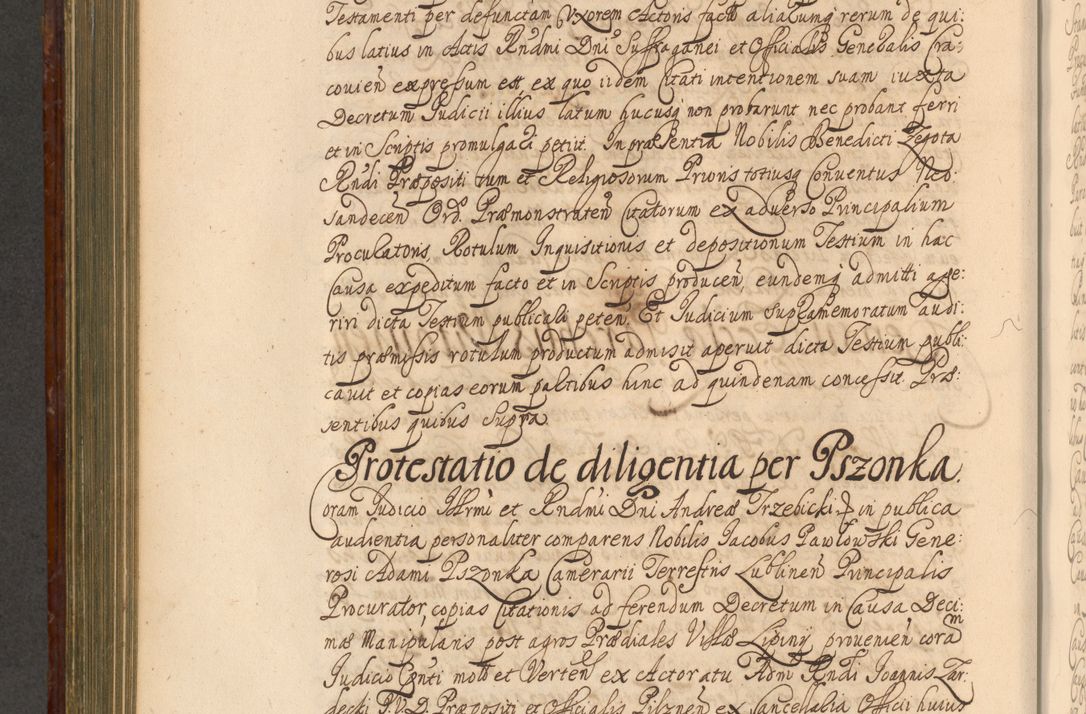 Testamenti per defunctam Uxorem Actoris facti aliarumq rerum de qui:
bus latius in Actis Rndmi Dni Suffraganei et Officialis Generalis Cra:
covien expressum est, ex quo iidem Citati intentionem suam iuxta
Decretum Judicii illius latum hucusq non probarunt nec probant ferri
et in Scriptis promulgari petiit. In præsentia Nobilis Benedicti Zegota
Rndi Præpositi tum et Religiosorum Prioris totiusq Conventus Neo:
sandecen Ord. Præmonstraten Citatorum ex adverso Principalium
Procuratoris, Rotulum Inquisitionis et depositionum Testium in hac
Causa expeditum facto et in Scriptis producen, eundemq admitti ape:
riri dicta Testium publicari peten. Et Judicium supramemoratum audi:
tis præmissis rotulum productum admisit aperuit dicta Testium publi:
cavit et copias eorum partibus hinc ad quindenam concessit. Præ:
sentibus quibus supra
Protestatio de diligentia per Pszonka.
Coram Judicio Illrmi et Rndmi Dni Andreæ Trzebicki in publica
audientia personaliter comparens Nobilis Jacobus Pawłowski Gene:
rosi Adami Pszonka Camerarii Terrestris Lublinen Principalis
Procurator, copias Citationis ad ferendum Decretum in Causa Deci:
mæ Manipularis post agros Prædiales Villæ Lipiny provenien coram
Judicio Conti mota et Verten ex Actoratu Adm Rndi Joannis Zar
decki J.U.D. Præpositi et Officialis Pilznen ex Cancellaria Officii huius